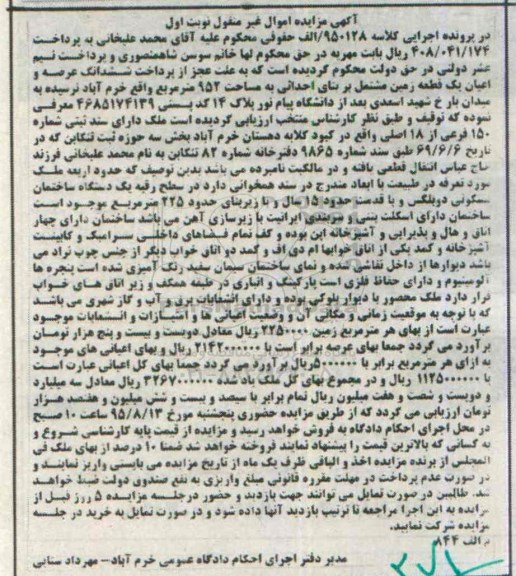 آگهی مزایده اموال غیر منقول نوبت اول
در پرونده اجرایی کلاسه ۹۵۰۱۲۸/الف حقوقی محکوم علیه آقای محمد علیخانی به پرداخت
۴۰۸/۰۴۱/۱۷۴ ریال بابت مهریه در حق محکوم لها خانم سوسن شاهمنصوری و پرداخت نسیم
عشر دولتی در حق دولت محکوم گردیده است که به علت عجز از پرداخت ششدانگ عرصه و
اعیان یک قطعه زمین مشتمل بر بنای احداثی به مساحت ۹۵۲ مترمربع واقع خرم آباد نرسیده به
میدان بار خ شهید اسعدی بعد از دانشگاه پیام نور پلاک ۱۴ کد پستی ۴۶۸۵۱۷۴۱۳۹ معرفی
نموده که توقیف و طبق نظر کارشناس منتخب ارزیابی گردیده است ملک دارای سند ثبتی شماره
۱۵۰ فرعی از ۱۸ اصلی واقع در کبود کلایه دهستان خرم آباد بخش سه حوزه ثبت تنکابن که در
تاریخ ۶۹/۶/۶ طبق سند شماره ۹۸۶۵ دفترخانه شماره ۸۲ تنکابن به نام محمد علیخانی فرزند
حاج عباس انتقال قطعی یافته و در مالکیت نامبرده می باشد بدین توصیف که حدود اربعه ملک
مورد تعرفه در طبیعت با ابعاد مندرج در سند همخوانی دارد در سطح رقبه یک دستگاه ساختمان
مسکونی دوبلکس و با قدمت حدود ۱۵ سال و با زیربنای حدود ۲۲۵ مترمربع موجود است
ساختمان دارای اسکلت بتنی و سربندی ایرانیت با زیرسازی آهن می باشد ساختمان دارای چهار
اتاق و هال و پذیرایی و آشپزخانه این بوده و کف تمام فضاهای داخلی سرامیک و کابینت
آشپزخانه و کمد یکی از اتاق خوابها ام دی اف و کمد دو اتاق خواب دیگر از جنس چوب نراد می
باشد دیوارها از داخل نقاشی شده و نمای ساختمان سیمان سفید رنگ آمیزی شده است پنجره ها
آلومینیوم و دارای حفاظ فلزی است پارکینگ و انباری در طبقه همکف و زیر اتاق های خواب
قرار دارد ملک محصور با دیوار بلوکی بوده و دارای انشعابات برق و آب و گاز شهری می باشد
که با توجه به موقعیت زمانی و مکانی آن و وضعیت اعیانی ها و امتیازات و انشعابات موجود
عبارت است از بهای هر مترمربع زمین ۲۲۵۰۰۰۰ ریال معادل دویست و بیست و پنج هزار تومان
برآورد می گردد جمعا بهای عرصه برابر است با ۲۱۴۲۰۰۰۰۰۰ ریال و بهای اعیانی های موجود
به ازای هر مترمربع برابر با ۵۰۰۰۰۰۰ ریال برآورد می گردد جمعا بهای کل اعیانی عبارت است
با ۱۱۲۵۰۰۰۰۰۰ ریال و در مجموع بهای کل ملک یاد شده ۳۲۶۷۰۰۰۰۰۰ ریال معادل سه میلیارد
و دویست و شصت و هفت میلیون ریال تمام برابر با سیصد و بیست و شش میلیون و هفتصد هزار
تومان ارزیابی می گردد که از طریق مزایده حضوری پنجشنبه مورخ ۹۵/۸/۱۳ ساعت ۱۰ صبح
در محل اجرای احکام دادگاه به فروش خواهد رسید و مزایده از قیمت پایه کارشناسی شروع و
به کسانی که بالاترین قیمت را پیشنهاد نمایند فروخته خواهد شد ضمنا ۱۰ درصد از بهای ملک فی
المجلس از برنده مزایده اخذ و الباقی ظرف یک ماه از تاریخ مزایده می بایستی واریز نمایند و
در صورت عدم پرداخت در مهلت مقرره قانونی مبلغ واریزی به نفع صندوق دولت ضبط خواهد
شد. طالبین در صورت تمایل می توانند جهت بازدید و حضور درجلسه مزایده ۵ روز قبل از
مزایده به این اجرا مراجعه تا ترتیب بازدید آنها داده شود و در صورت تمایل به خرید در جلسه
مزایده شرکت نمایید.
م الف ۸۴۴
مدیر دفتر اجرای احکام دادگاه عمومی خرم آباد – مهرداد سنایی